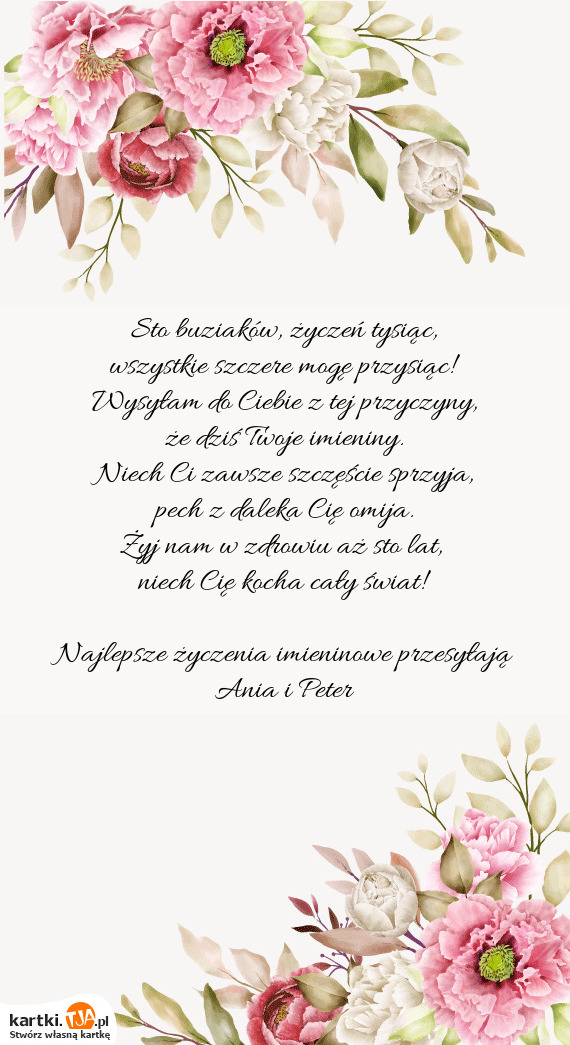 Sto buziaków, życzeń tysiąc,
wszystkie szczere mogę przysiąc!
Wysyłam do Ciebie z tej przyczyny,
że dziś Twoje imieniny.
Niech Ci zawsze szczęście sprzyja,
pech z daleka Cię omija.
Żyj nam w zdrowiu aż sto lat,
niech Cię kocha cały świat!
Najlepsze życzenia imieninowe przesyłają
Ania i Peter
kartki.TJA.pl
Stwórz własną kartkę